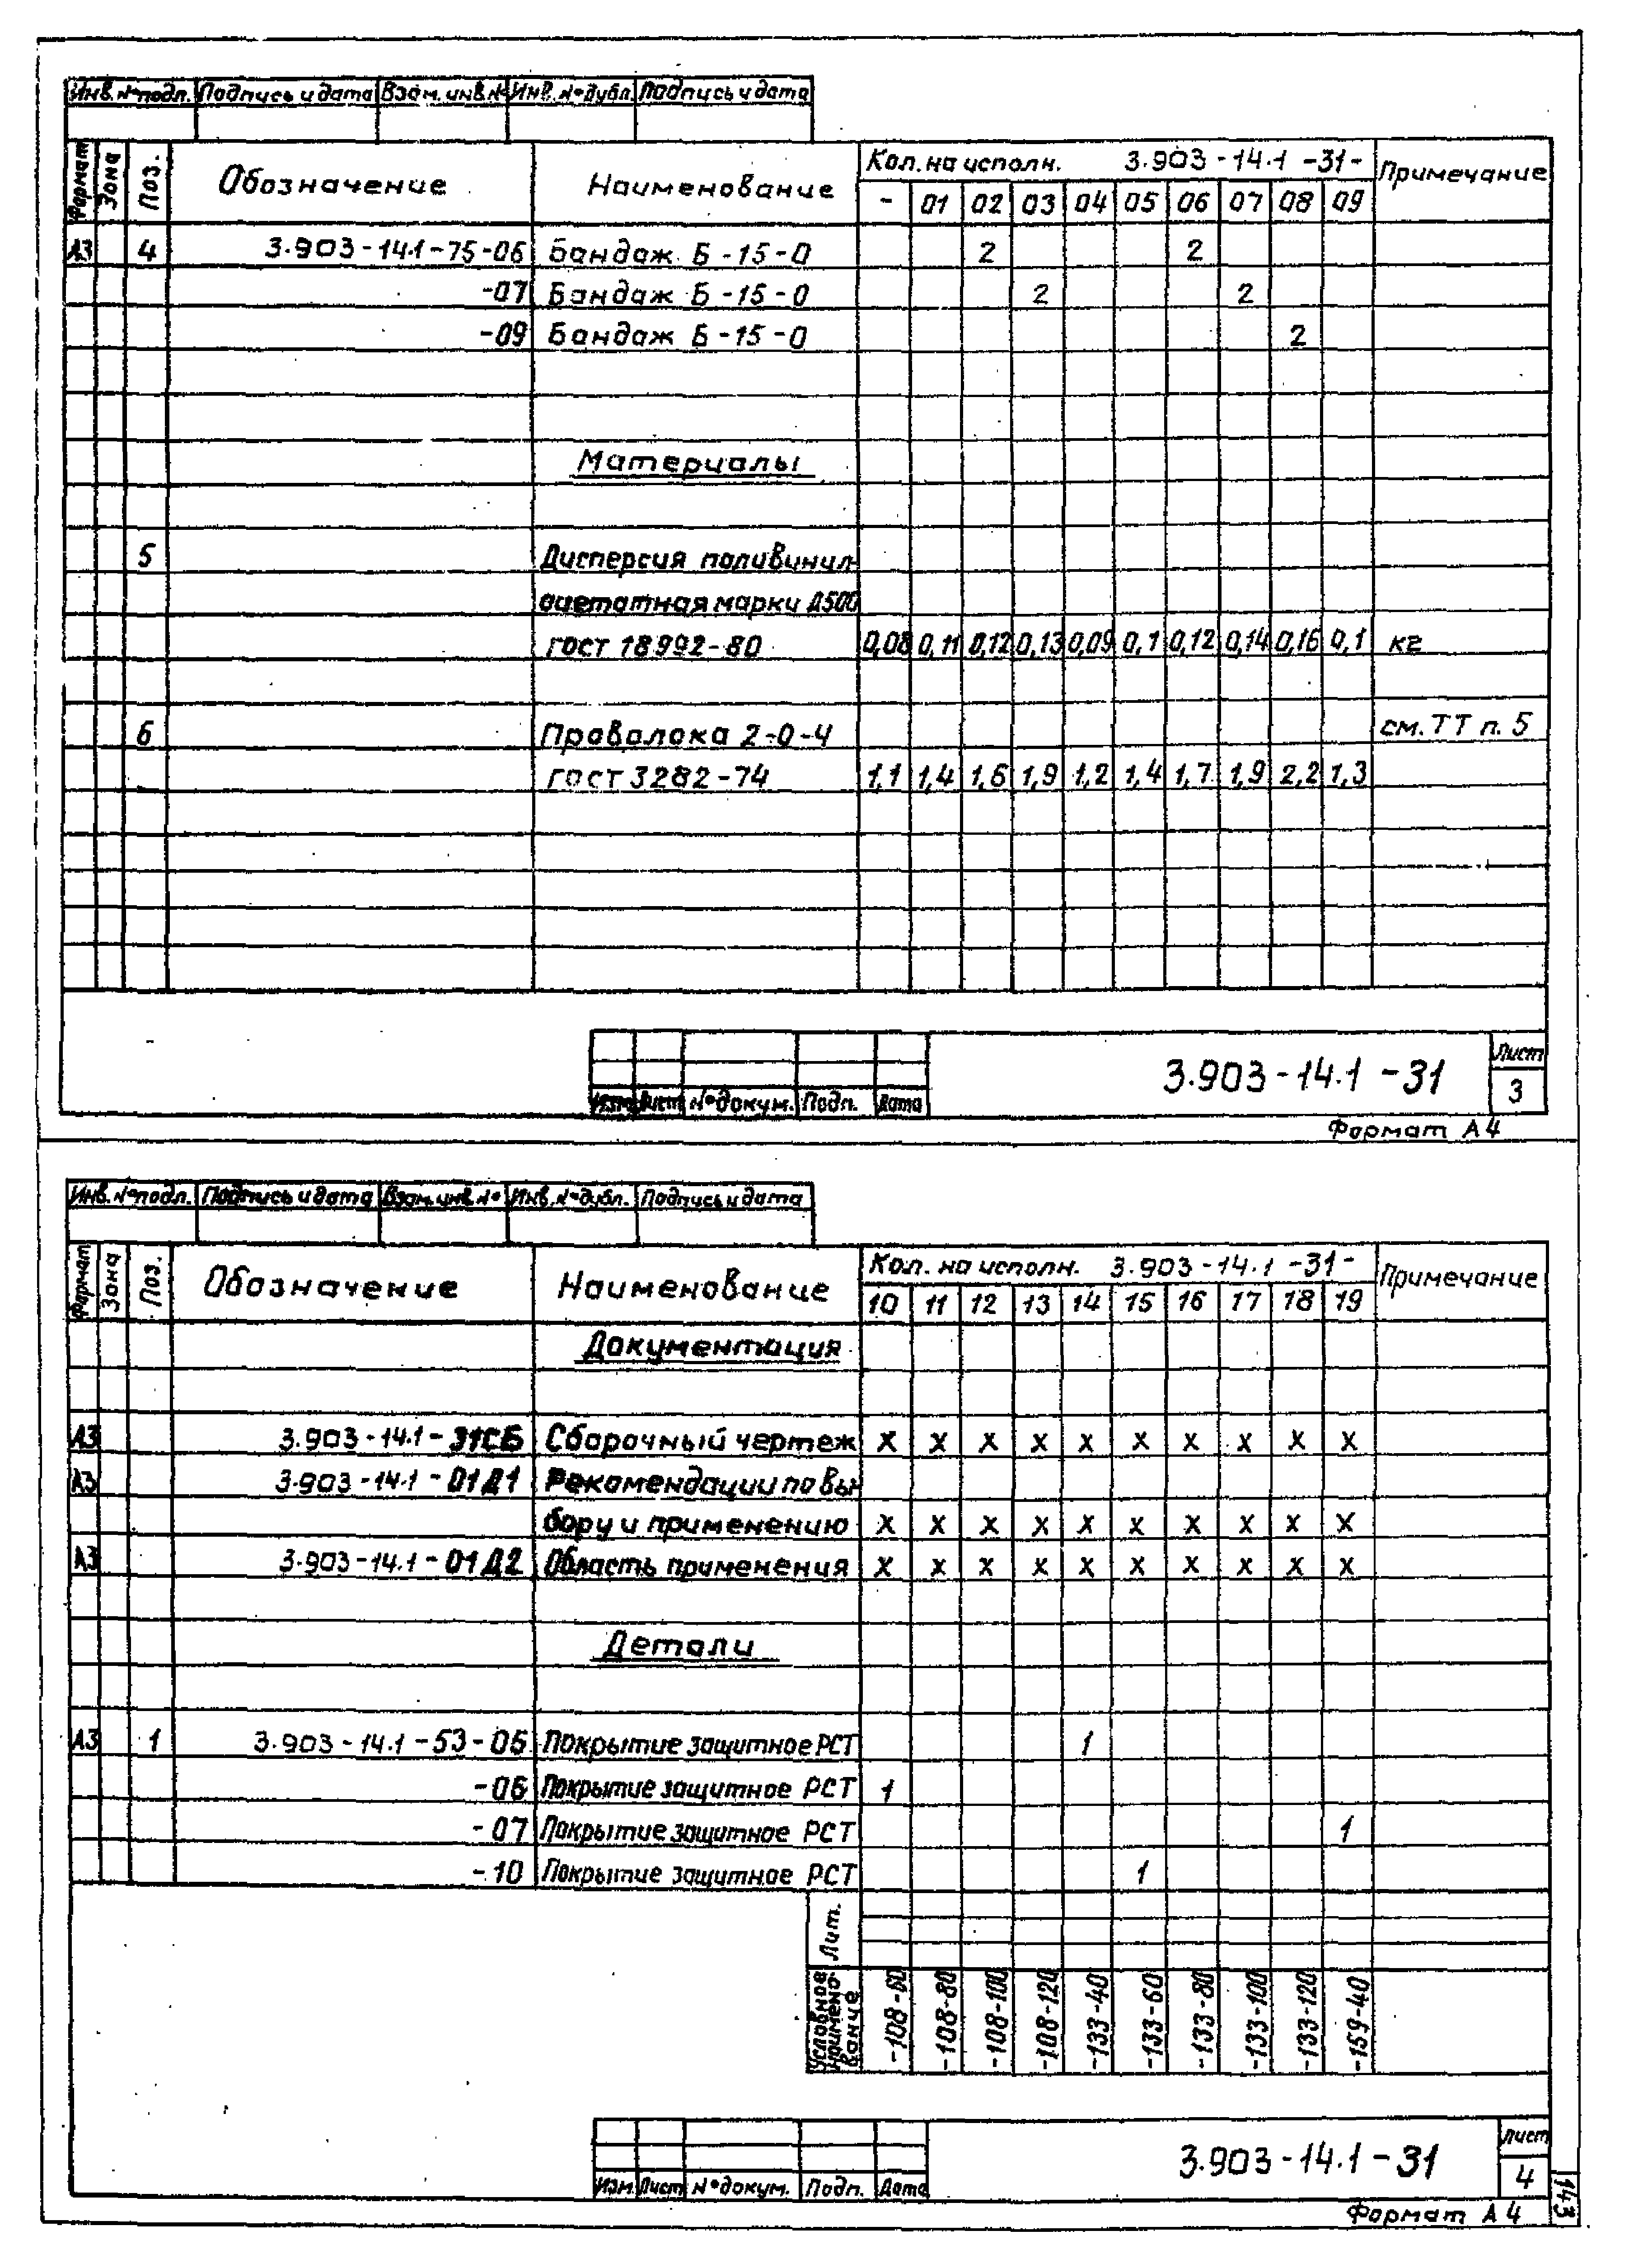 Инв. № подл. Подпись и дата Взам. инв. № Инв. № дубл. Подпись и дата
Формат Зона Поз. Обозначение Наименование Кол. на исполн. 3.903-14.1-31- Примечание
- 01 02 03 04 05 06 07 08 09
А3 4 3.903-14.1-75-06 Бандаж Б-15-0 2 2
-07 Бандаж Б-15-0 2 2
-09 Бандаж Б-15-0 2
Материалы
5 Дисперсия поливинил-
ацетатная марки Д500
гост 18992-80 0,08 0,11 0,12 0,13 0,09 0,1 0,12 0,14 0,16 0,1 кг
6 Проволока 2-0-4 см. ТТ п. 5
гост 3282-74 1,1 1,4 1,6 1,9 1,2 1,4 1,7 1,9 2,2 1,3
3.903-14.1-31 Лист
3
Изм. Лист № докум. Подп. Дата
Формат А4
Инв. № подл. Подпись и дата Взам. инв. № Инв. № дубл. Подпись и дата
Формат Зона Поз. Обозначение Наименование Кол. на исполн. 3.903-14.1-31- Примечание
10 11 12 13 14 15 16 17 18 19
Документация
А3 3.903-14.1-31СБ Сборочный чертеж х х х х х х х х х х
А3 3.903-14.1-01Д1 Рекомендации по вы-
бору и применению х х х х х х х х х х
А3 3.903-14.1-01Д2 Область применения х х х х х х х х х х
Детали
А3 1 3.903-14.1-53-05 Покрытие защитное РСТ 1
-06 Покрытие защитное РСТ 1
-07 Покрытие защитное РСТ 1
-10 Покрытие защитное РСТ 1
Лит.
Условное наименование -108-60 -108-80 -108-100 -108-120 -133-40 -133-60 -133-80 -133-100 -133-120 -159-40
3.903-14.1-31 Лист
4
Изм. Лист № докум. Подп. Дата
Формат А4
143